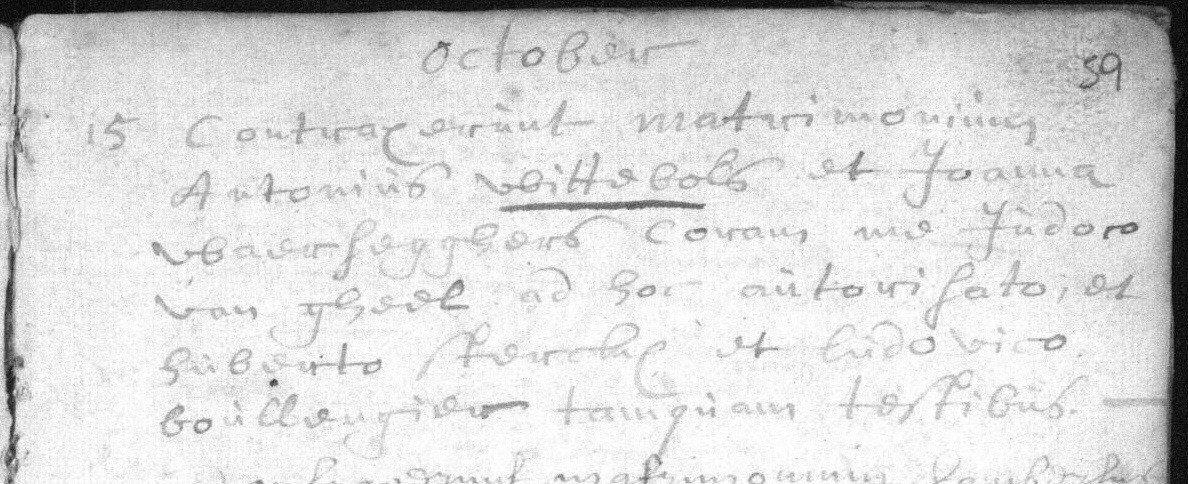 October
39
15 Contraxerunt matrimonium
Antonius wittebols et Joanna
waerseggherS Coram me Judoco
van gheel ad hoc autorisato, et
huberto sterckx et ludovico
boullengier tamquam testibus.
matrimonium